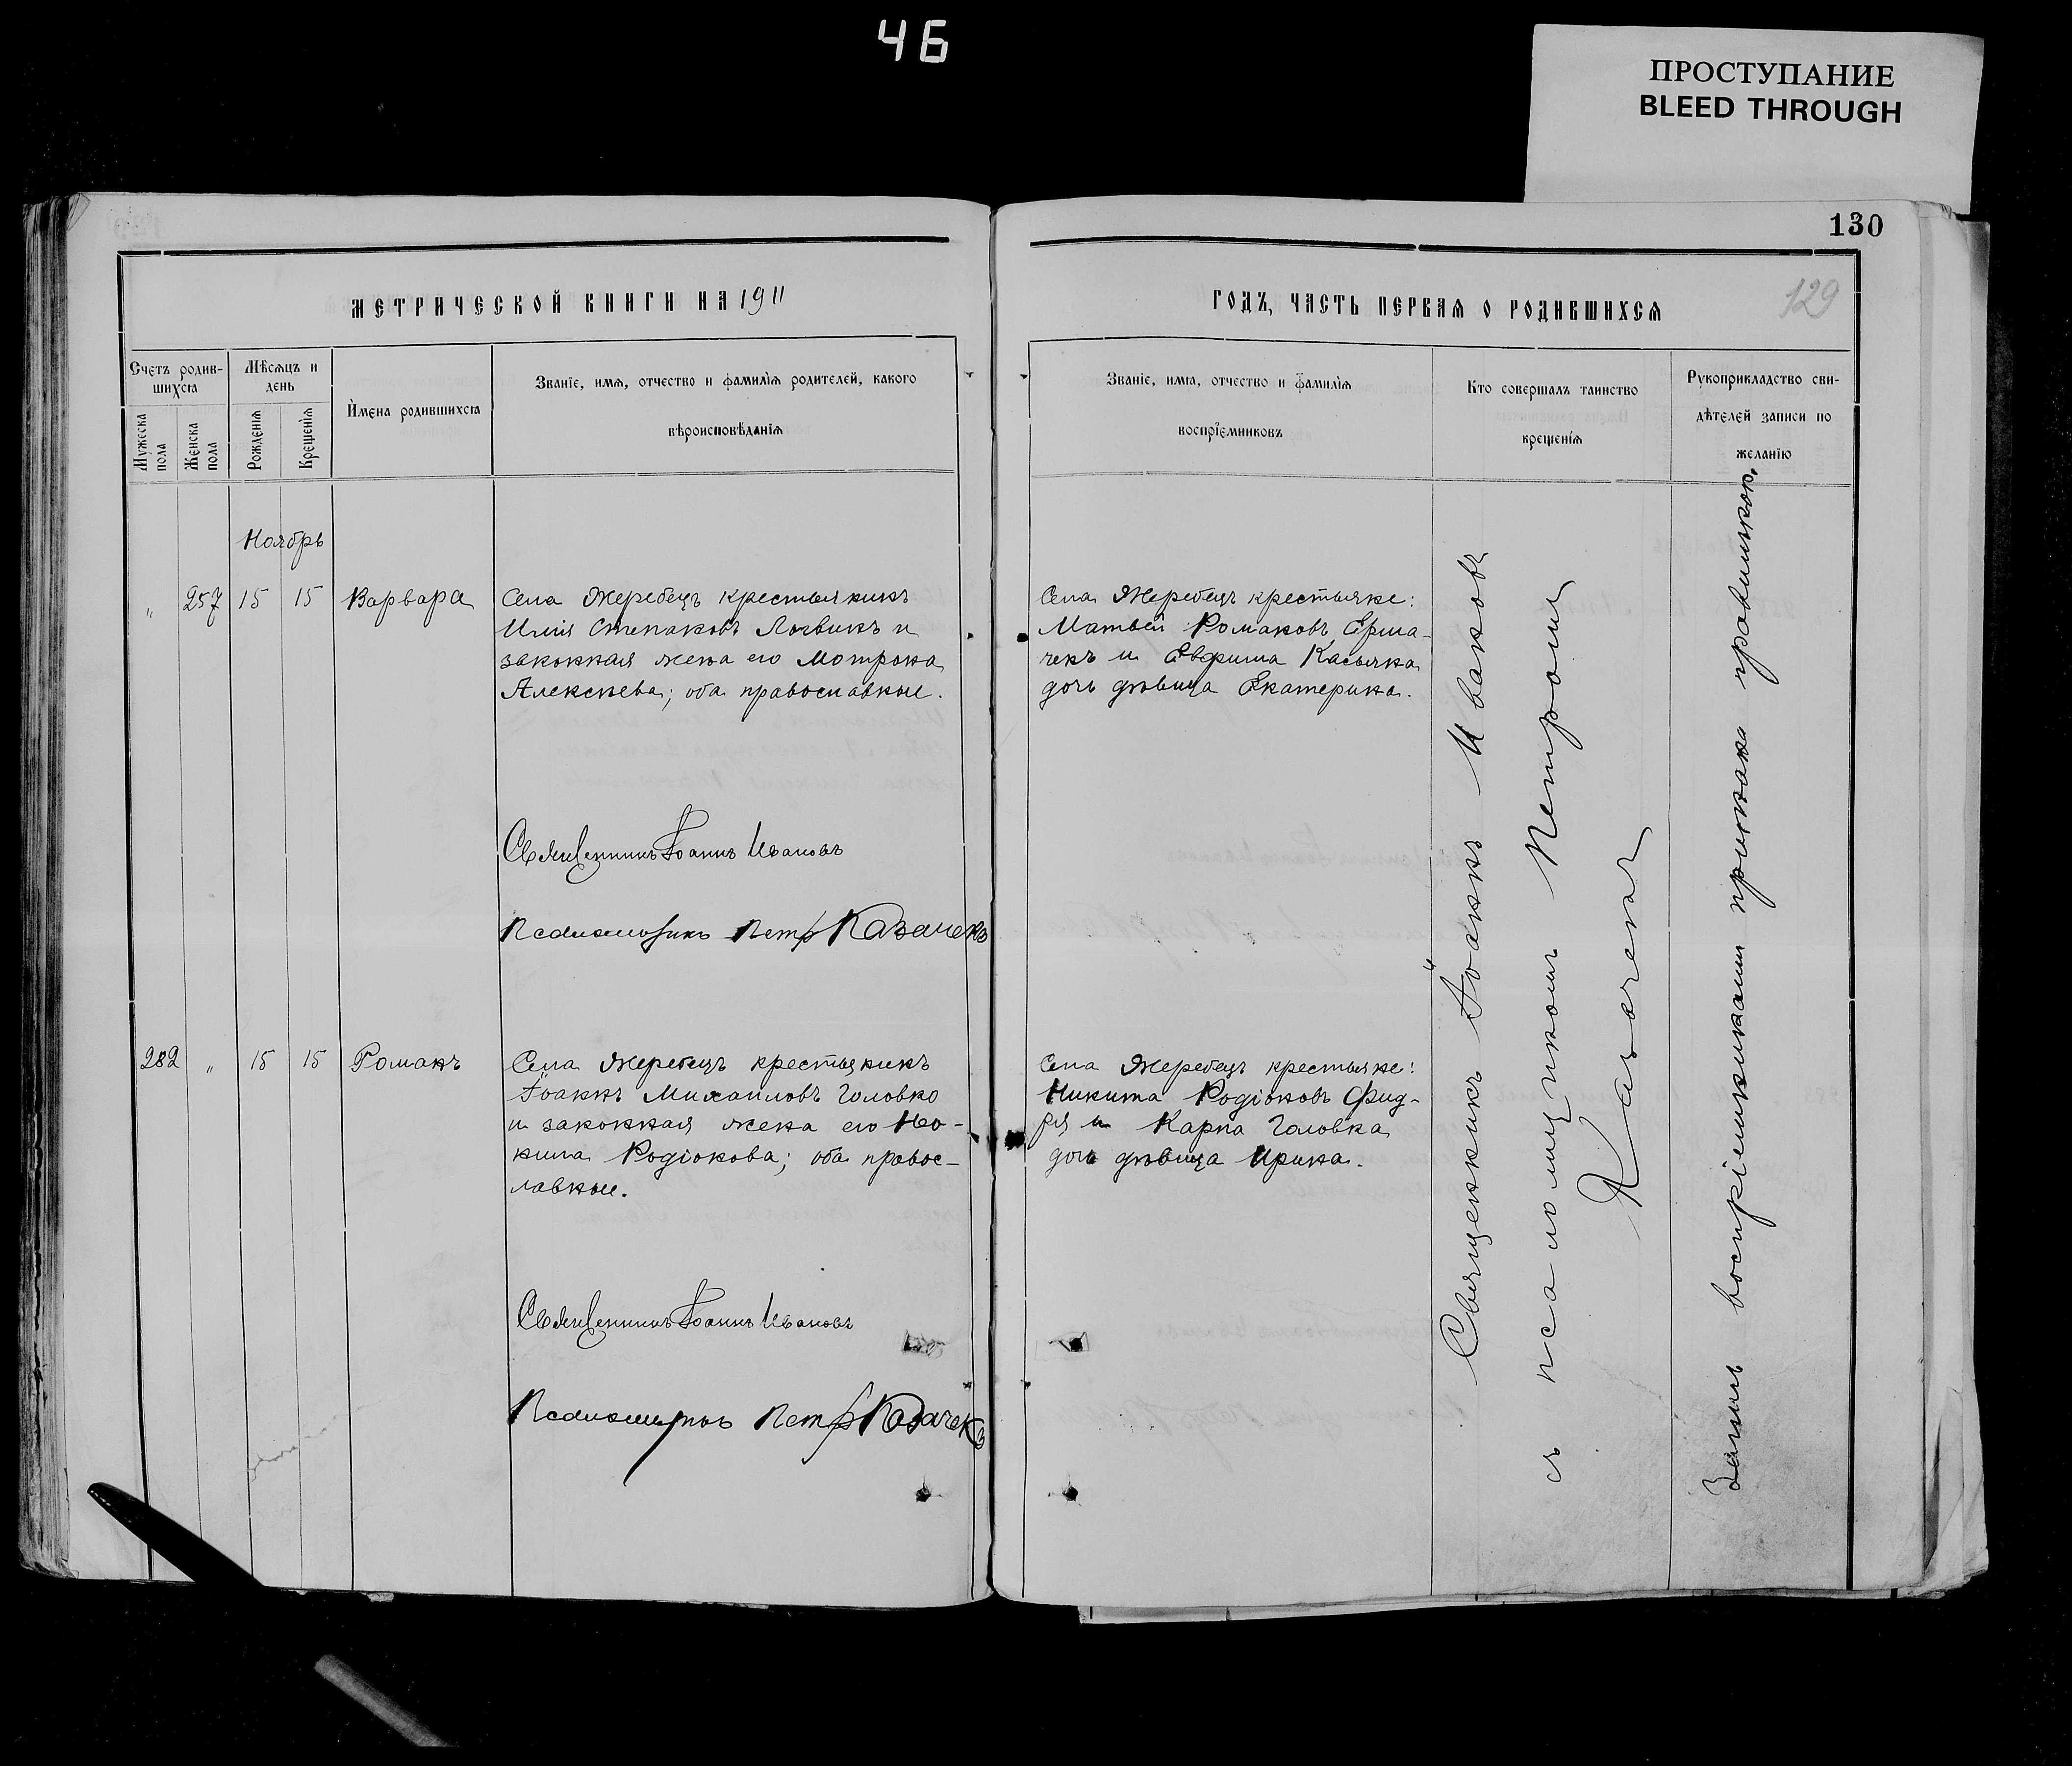 46
ПРОСТУПАНИЕ
BLEED THROUGH
130
129
МЕТРИЧЕСКОЙ КНИГИ НА 1911
ГОДЪ, ЧАСТЬ ПЕРВАЯ О РОДИВШИХСЯ
Счетъ родив-
шихся
Мужеска пола
Женска пола
Мѣсяцъ и
день
Рожденія
Крещенія
Имена родившихся
Званіе, имя, отчество и фамилія родителей, какого
вѣроисповѣданія
Званіе, имя, отчество и фамилія
воспріемниковъ
Кто совершалъ таинство
крещенія
Рукоприкладство сви-
дѣтелей записи по
желанію
Ноябрь
" 257 15 15 Варвара
Села Жеребецъ крестьянинъ
Илія Стефановъ Логвинъ и
законная жена его Мотрона
Алексѣева; оба православные.
Священникъ Іоаннъ Ивановъ
Псаломщикъ Петръ Казачекъ
Села Жеребецъ крестьяне:
Матвей Романовъ Ерма-
чекъ и Евфима Касьяна
дочь дѣвица Екатерина.
282 " 15 15 Романъ
Села Жеребецъ крестьянинъ
Іоаннъ Михаиловъ Головко
и законная жена его Нео-
нила Родіонова; оба правос-
лавные.
Священникъ Іоаннъ Ивановъ
Псаломщикъ Петръ Казачекъ
Села Жеребецъ крестьяне:
Никита Родіоновъ Фид-
ря и Карпа Головка
дочь дѣвица Ирина.
Священникъ Іоаннъ Ивановъ
съ псаломщикомъ Петромъ
Казачекъ
Запись воспріемниками признана правильною.